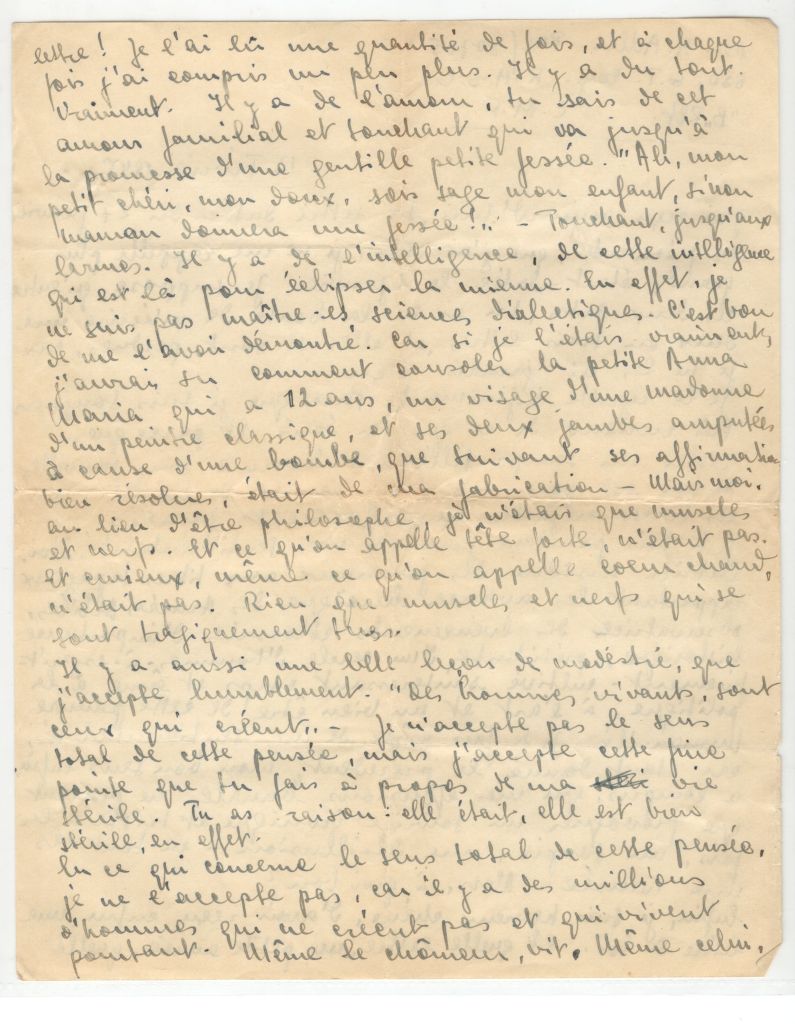 lettre! Je l'ai lû une quantité de fois, et à chaque
fois j'ai compris un peu plus. Il y a du tout.
Vraiment. Il y a de l'amour, tu sais de cet
amour familial et touchant qui va jusqu'à
la promesse d'une gentille petite fessée. "Ah, mon
petit chéri, mon doux, sois sage mon enfant, sinon
maman donnera une fessée!„ – Touchant, jusqu'aux
larmes. Il y a de l'intelligence, de cette intelligence
qui est là pour éclipser la mienne. En effet, je
ne suis pas maître-ès sciences dialectiques. C'est bon
de me l'avoir démontré. Car si je l'étais vraiment,
j'aurais su comment consoler la petite Anna
Maria qui a 12 ans, un visage d'une madonne
d'un peintre classique, et ses deux jambes amputées
à cause d'une bombe, que suivant ses affirmations
bien résolues, était de ma fabrication – Mais moi,
au lieu d'être philosophe, je n'étais que muscles
et nerfs. Et ce qu'on appelle tête forte, n'était pas.
Et curieux, même ce qu'on appelle coeur chaud,
n'était pas. Rien que muscles et nerfs qui se
sont tragiquement tues.
Il y a aussi une belle leçon de modéstie, que
j'accepte humblement. "Des hommes vivants, sont
ceux qui créent„ – Je n'accepte pas le sens
total de cette pensée, mais j'accepte cette fine
pointe que tu fais à propos de ma vie
stérile. Tu as raison: elle était, elle est bien
stérile, en effet.
En ce qui concerne le sens total de cette pensée,
je ne l'accepte pas, car il y a des millions
d'hommes qui ne créent pas et qui vivent
pourtant. Même le chômeur, vit. Même celui,